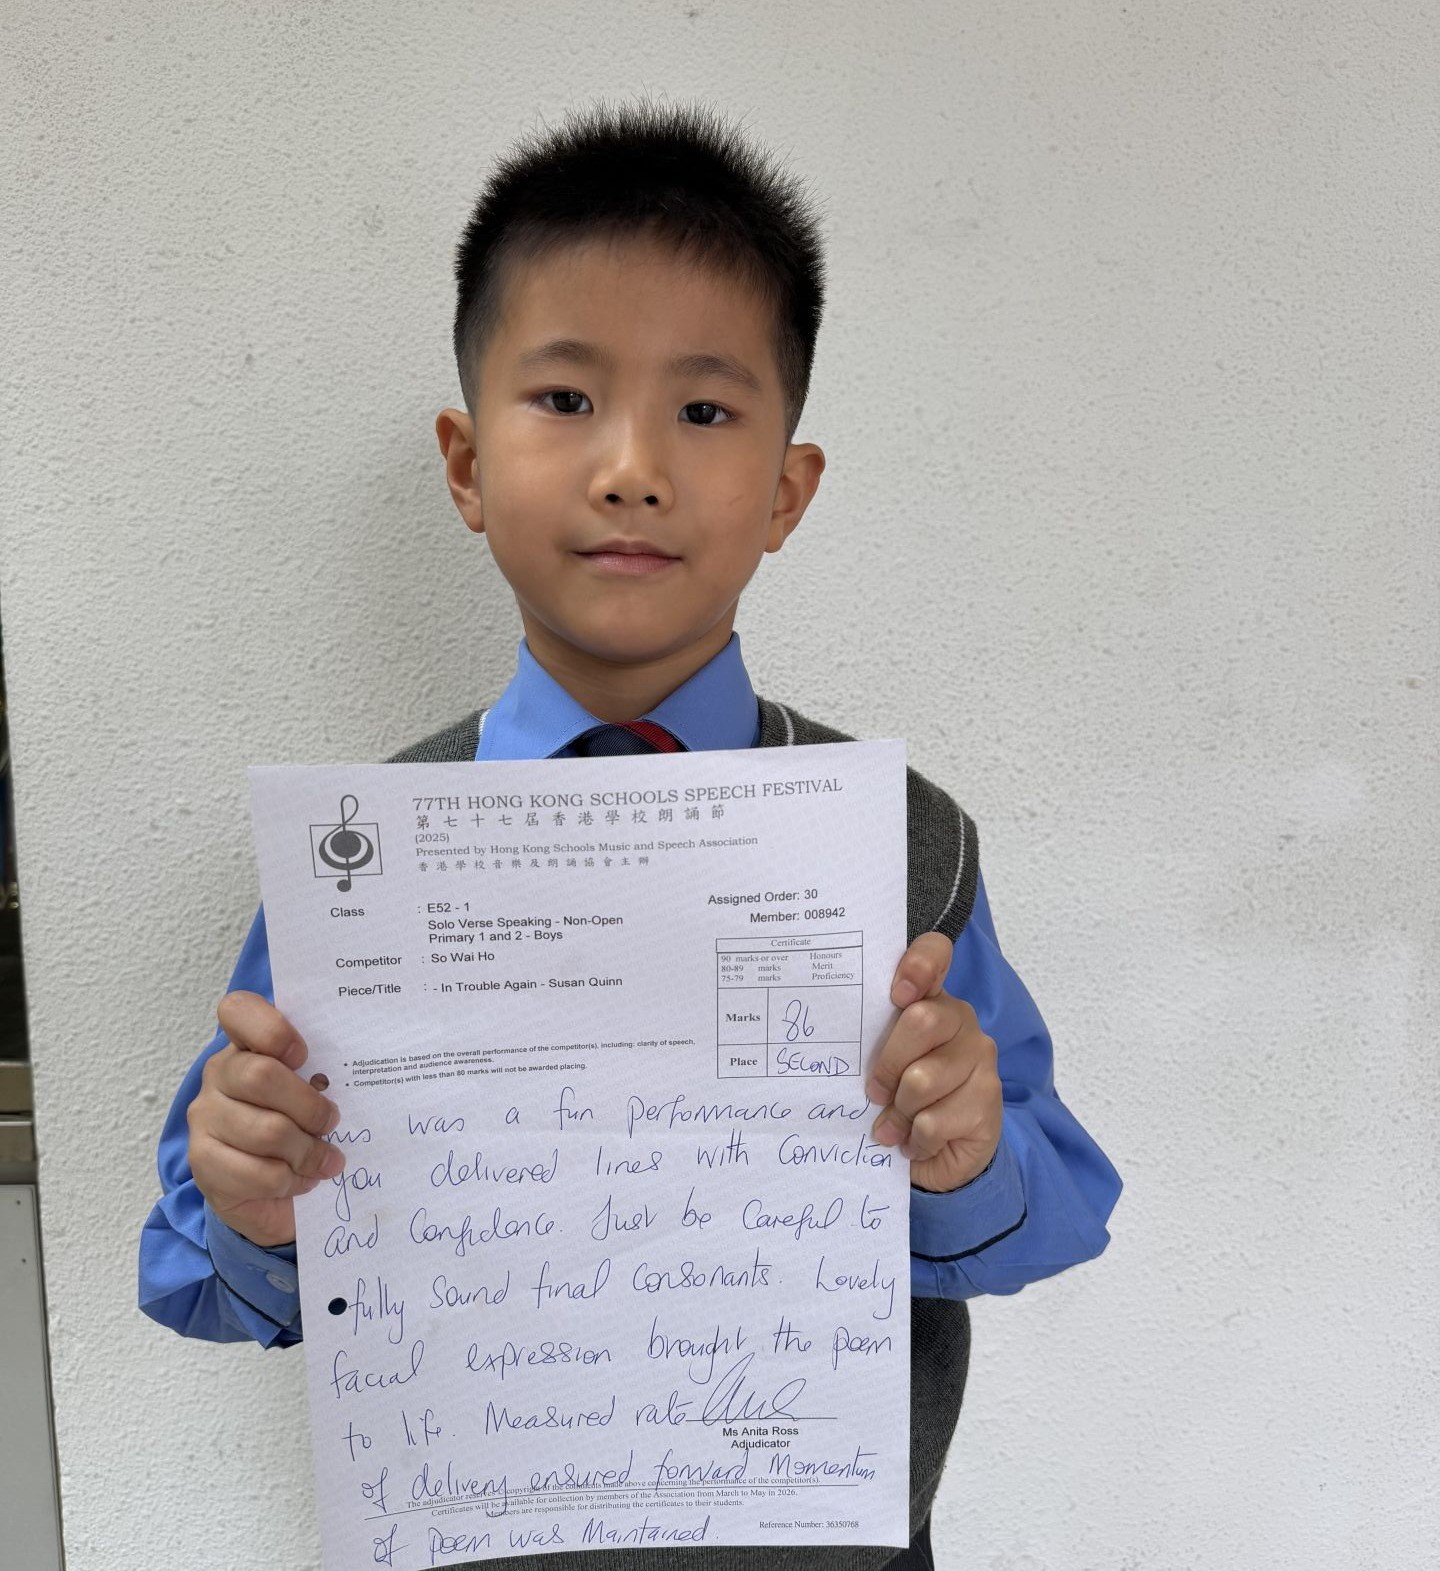 77TH HONG KONG SCHOOLS SPEECH FESTIVAL
第七十七屆香港學校朗誦節
(2025)
Presented by Hong Kong Schools Music and Speech Association
香港學校音樂及朗誦協會主辦
Class : E52 - 1
Solo Verse Speaking - Non-Open
Primary 1 and 2 - Boys
Competitor : So Wai Ho
Piece/Title : - In Trouble Again - Susan Quinn
Assigned Order: 30
Member: 008942
Certificate
90 marks or over Honours
80-89 marks Merit
75-79 marks Proficiency
Marks 86
Place SECOND
• Adjudication is based on the overall performance of the competitor(s), including: clarity of speech,
interpretation and audience awareness.
• Competitor(s) with less than 80 marks will not be awarded placing.
was a fun performance and
you delivered lines with Conviction
and Confidence. Just be Careful to
fully Sound final Consonants. Lovely
facial expression brought the poem
to life. Measured rate
Ms Anita Ross
Adjudicator
of delivery ensured forward Momentum
The adjudicator copyright of the comments made above concerning the performance of the competitor(s).
Certificates will be available for collection by members of the Association from March to May in 2026.
Members are responsible for distributing the certificates to their students.
of poem was Maintained.
Reference Number: 36350768